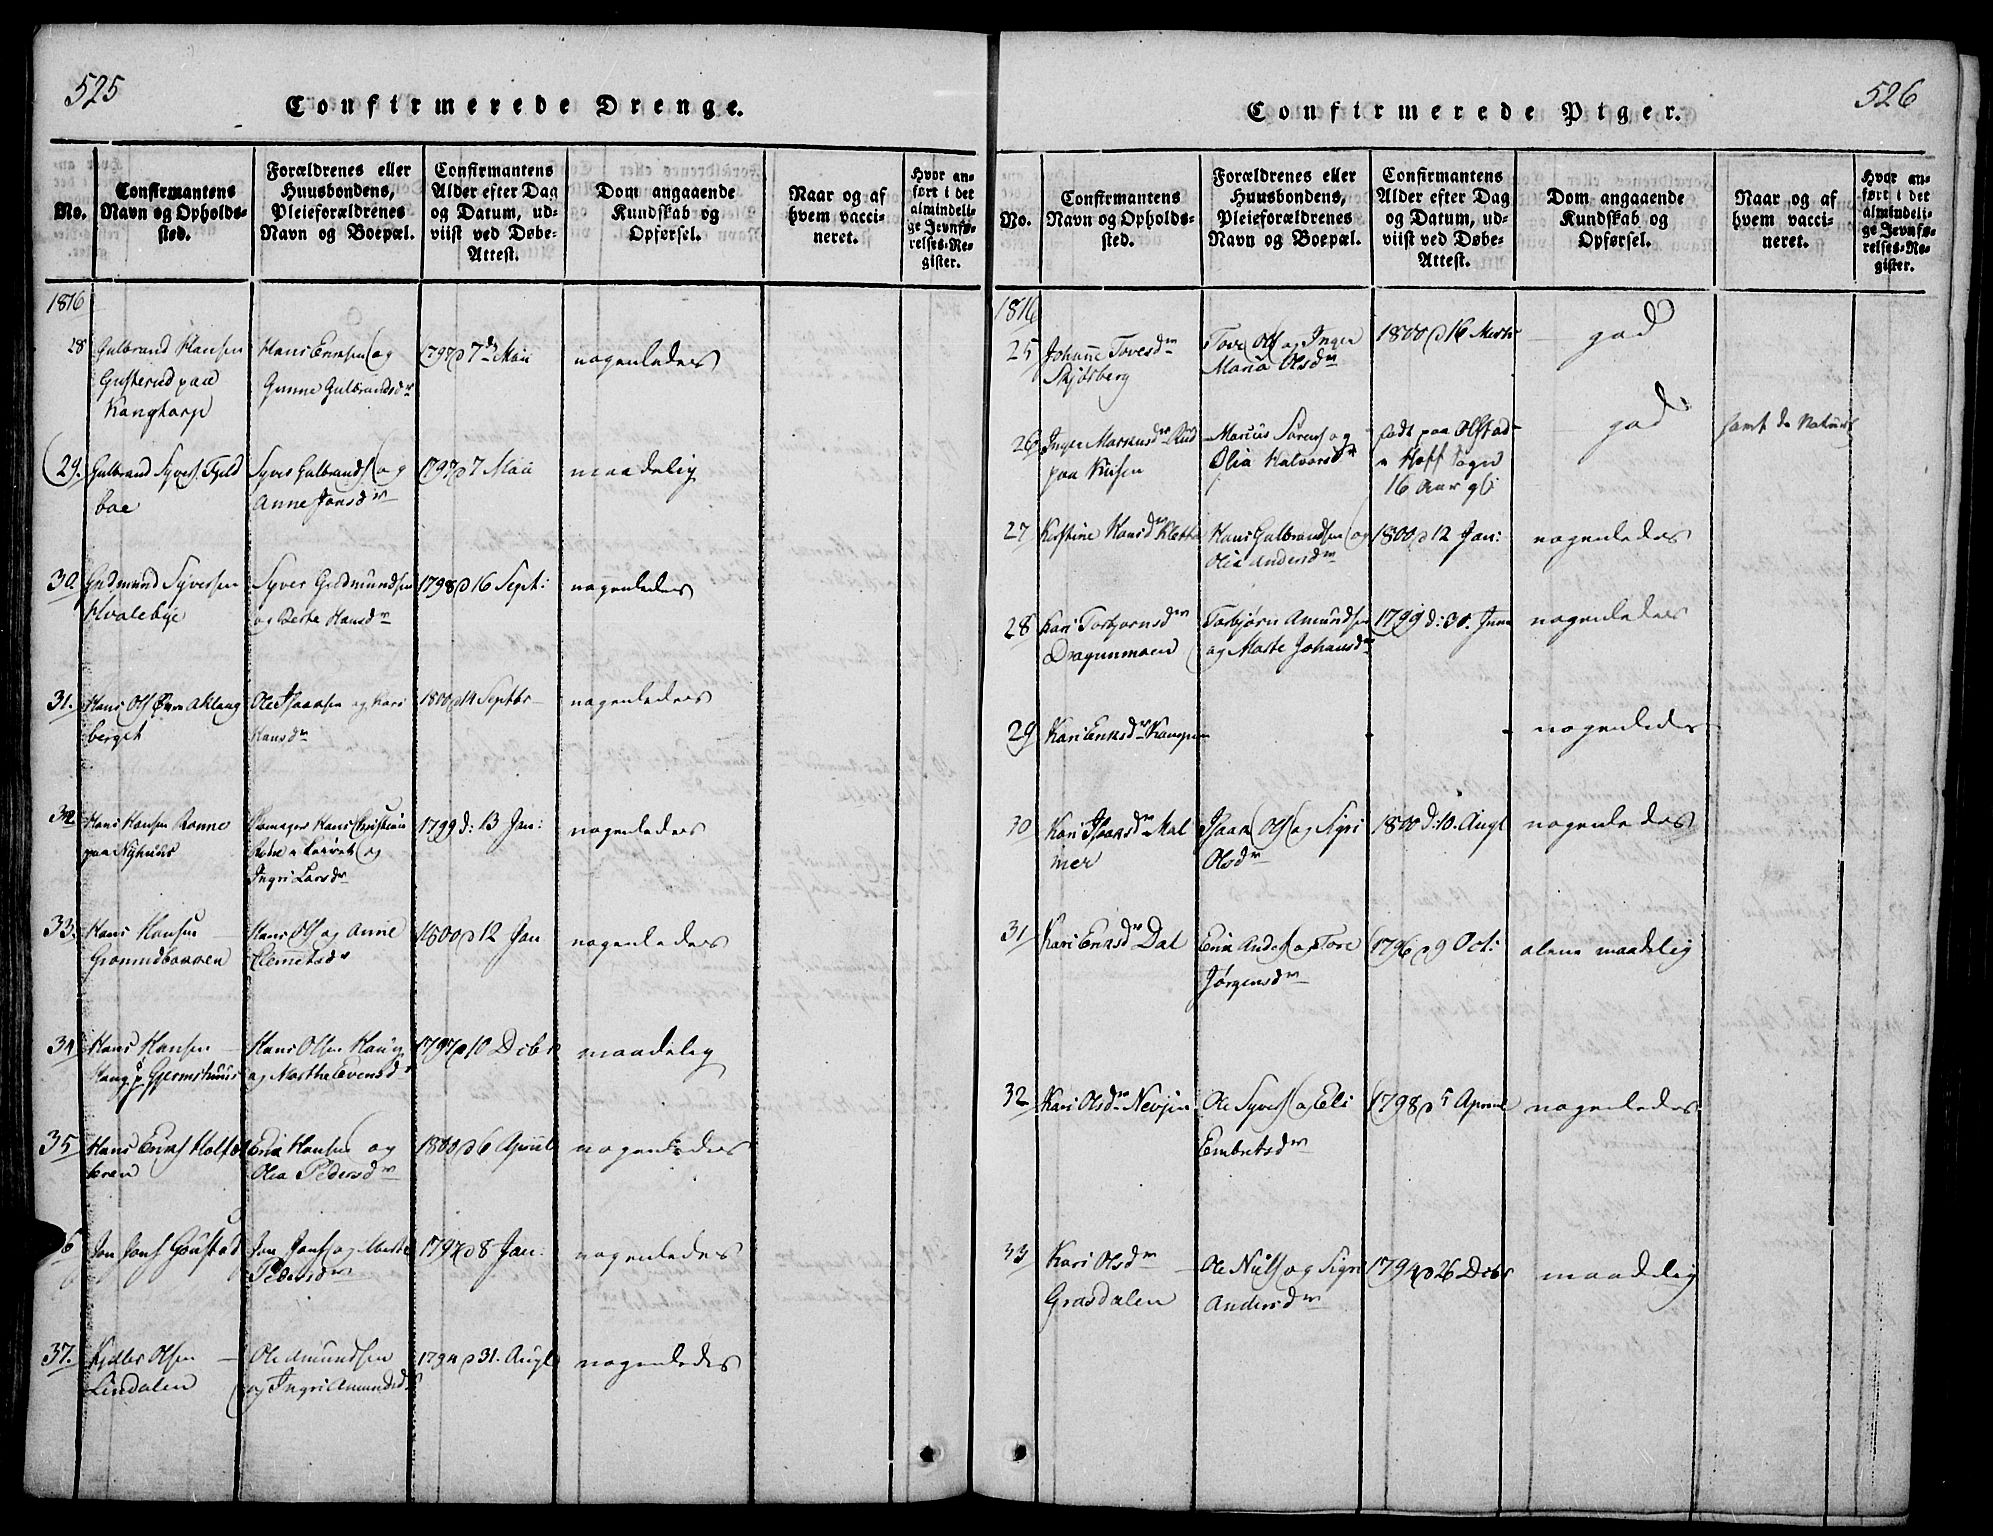 525
Confirmerede Drenge.
No.
Confirmantens
Navn og Opholds-
sted.
Forældrenes eller
Huusbondens,
Pleieforældrenes
Navn og Boepæl.
Confirmantens
Alder efter Dag
og Datum, ud-
viist ved Døbe-
Attest.
Dom angaaende
Kundskab og
Opførsel.
Naar og af
hvem vacci-
neret.
Hvor an-
ført i det
almindeli-
ge Jevnfø-
relses-Re-
gister.
1816
28 Gulbrand Hansen
Gusterud paa
Kangtorp
Hans Ericsen og
Gunne Gulbrandsdr
1797 d 7de Maii
nogenledes
29. Gulbrand Syvers. Fjeld
boe
Syver Gulbrands. og
Anne Jonsdr
1797 d 7 Maii
maadelig
30. Gudmund Syversen
Hvalebye
Syver Gudmundsen
og Berte Hansdr
1798 d 16 Sept:
nogenledes
31. Hans Ols.
berget
Ole Isaansen og Kari
Hansdr
1800 d 14 Septbr
nogenledes
32 Hans Hansen Ronne
paa Nyhuus
Hans Christian
Ingri Larsdr
1799 d: 13 Jan:
nogenledes
33. Hans Hansen
Hans Ols. og Anne
Clemetsdr
1800 d 12 Jan
nogenledes
34 Hans Hansen
Haug p. Gjermshuus
Hans Olsen Haug
og Marthe Evensdr
1797 d 10 Decbr
maadelig
35 Hans Erics. Holtet
eren
Eric Hansen og
Olea Pedersdr
1800 d 6 April
nogenledes
6 Jon Jons. Goustad
Jon Jons. og Marte
Pedersdr
1797 d 8 Jan:
nogenledes
37. Kjdler Olsen
Lindalen
Ole Amundsen
og Ingri Amundsd.
1794 d 31. Augt
nogenledes
526
Confirmerede Piger.
No.
Confirmantens
Navn og Opholds-
sted.
Forældrenes eller
Huusbondens,
Pleieforældrenes
Navn og Boepæl.
Confirmantens
Alder efter Dag
og Datum, ud-
viist ved Døbe-
Attest.
Dom angaaende
Kundskab og
Opførsel.
Naar og af
hvem vacci-
neret.
Hvor an-
ført i det
almindeli-
ge Jevnfø-
relses-Re-
gister.
1816
25 Johanne Tovesdr
Skjørberg
Tove Ols. og Inger
Maria Olsdr
1800 d 16 Marts
god
26 Inger Marcusdr Rud
paa Kiisen
Marcus Sørens. og
Olia Halvorsdr
født paa Olstad
i Hoff Sogn
16 Aar gl:
god
havt de Naturl
27 Kirstine Hansdr Kletten
Hans Gulbrandsen og
Olia Andersdr
1800 d 12 Jan:
nogenledes
28 Kari Torbjornsdr
Dragunmoen
Torbjørn Amundsen
og Marte Johansdr
1799 d: 30. Juni
nogenledes
29 Kari Ericsdr Kangen
nogenledes
30 Kari Isaansdr Mal
mer
Isaan Ols. og Sigri
Olsdr
1800 d: 10. Augt
nogenledes
31 Kari Ericsdr Dal
Eric Anders. og Tore
Jørgensdr
1796 d 9 Oct:
alene maadelig
32 Kari Olsdr Nevjen
Ole Syvers. og Eli
Embretsdr
1798 d 5 April
nogenledes
33 Kari Olsdr
Grasdalen
Ole Niels. og Sigri
Andersdr
1794 d 26 Decbr
maadelig